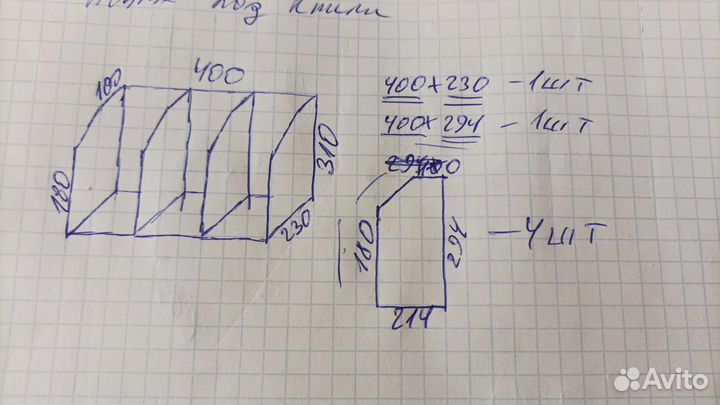 под
100
400
400 x 230 - 1шт
400 x 294 - 1шт
180
310
230
180
294
- 4шт
214
Avito